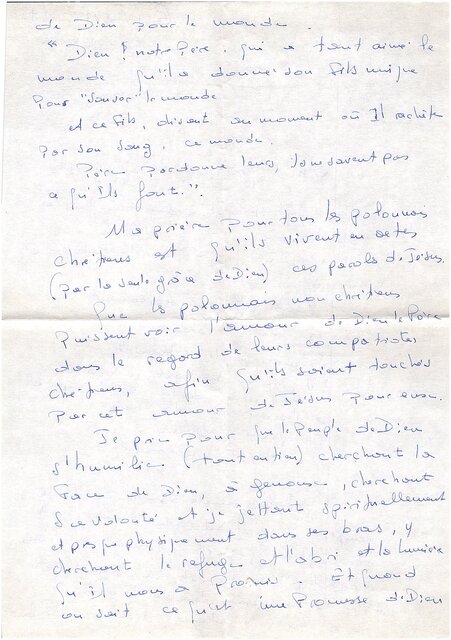 de Dieu pour le monde
"Dieu ! notre Père, qui a tant aimé le
monde qu'il a donné son Fils unique
Pour "sauver" le monde
Et ce Fils, disant au moment où Il rachète
Par son sang, ce monde.
Père Pardonne leurs, ils ne savent pas
ce qu'Ils font.".
Ma prière pour tous les polonnais
chrétiens est qu'ils vivent en actes
(Par la seule grâce de Dieu) ces parols de Jésus.
Que les polonnais non chrétiens
Puissent voir l'amour de Dieu le Père
dans le regard de leurs compatriotes
chrétiens, afin qu'ils soient touchés
Par cet amour de Jésus Pour eux.
Je prie Pour que le Peuple de Dieu
s'humilie (tout entier) cherchant la
Face de Dieu, à genoux, cherchant
Sa volonté et se jettant spirituellement
et presque physiquement dans ses bras, y
cherchant le refuge et l'abri et la lumière
qu'il nous a Promis. Et quand
on sait ce qu'est une Promesse de Dieu